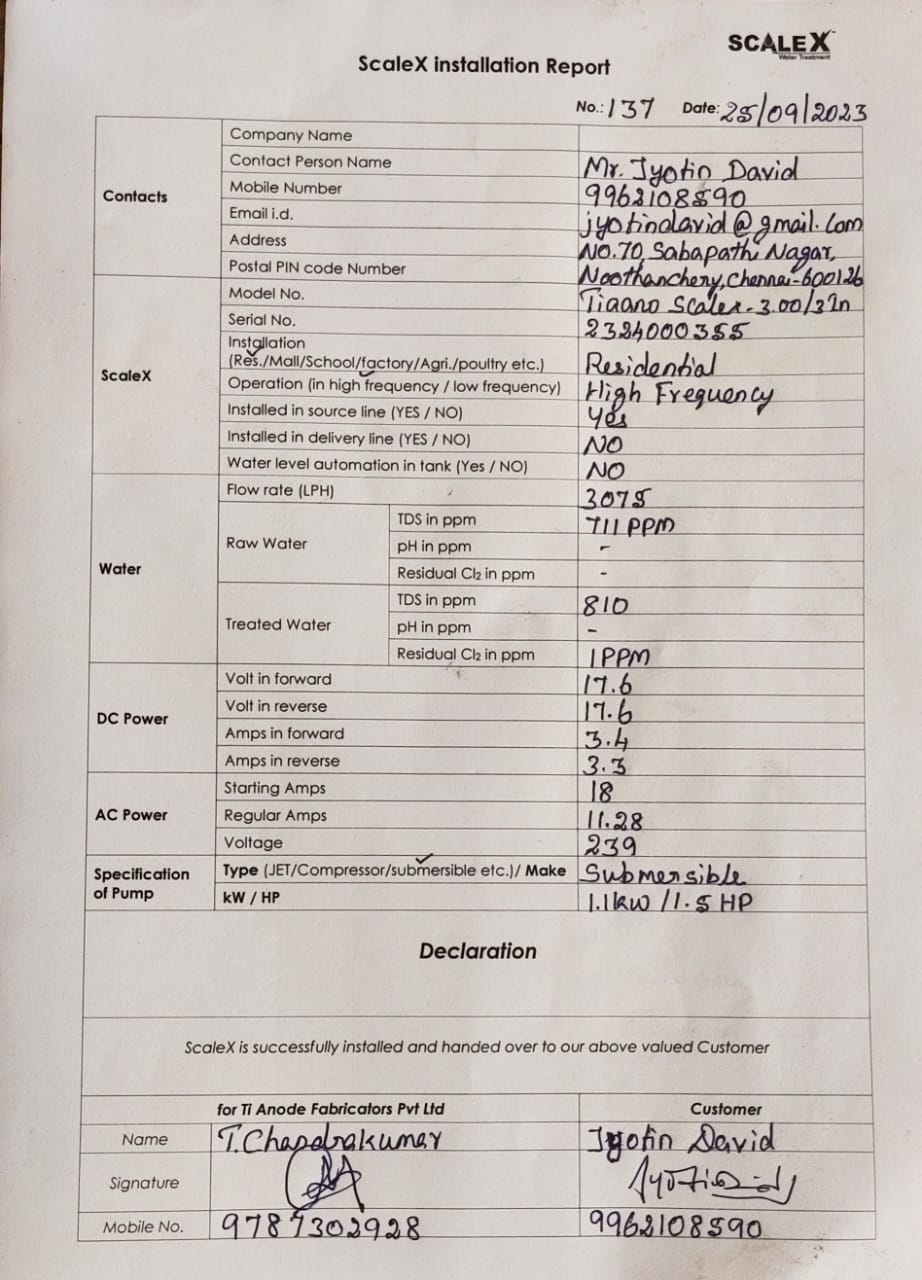 SCALEX
Water Treatment
ScaleX installation Report
No.: 137 Date: 25/09/2023
Contacts
Company Name
Contact Person Name Mr. Jyotin David
Mobile Number 9962108590
Email i.d. jyotindavid@gmail.com
Address No.70, Sabapathi Nagar,
Postal PIN code Number Noothanchery, Chennai-600126
ScaleX
Model No. Tiaano Scalex-3.00/3In
Serial No. 2324000355
Installation
(Res./Mall/School/factory/Agri./poultry etc.) Residential
Operation (in high frequency / low frequency) High Frequency
Installed in source line (YES / NO) Yes
Installed in delivery line (YES / NO) NO
Water level automation in tank (Yes / NO) NO
Water
Flow rate (LPH) 3075
Raw Water
TDS in ppm 711 PPM
pH in ppm -
Residual Cl₂ in ppm -
Treated Water
TDS in ppm 810
pH in ppm -
Residual Cl₂ in ppm 1 PPM
DC Power
Volt in forward 17.6
Volt in reverse 17.6
Amps in forward 3.4
Amps in reverse 3.3
AC Power
Starting Amps 18
Regular Amps 11.28
Voltage 239
Specification
of Pump
Type (JET/Compressor/submersible etc.)/ Make Submersible
kW / HP 1.1kw /1.5 HP
Declaration
ScaleX is successfully installed and handed over to our above valued Customer
for Ti Anode Fabricators Pvt Ltd Customer
Name T. Chandrakumar Jyotin David
Signature
Mobile No. 9787302928 9962108590